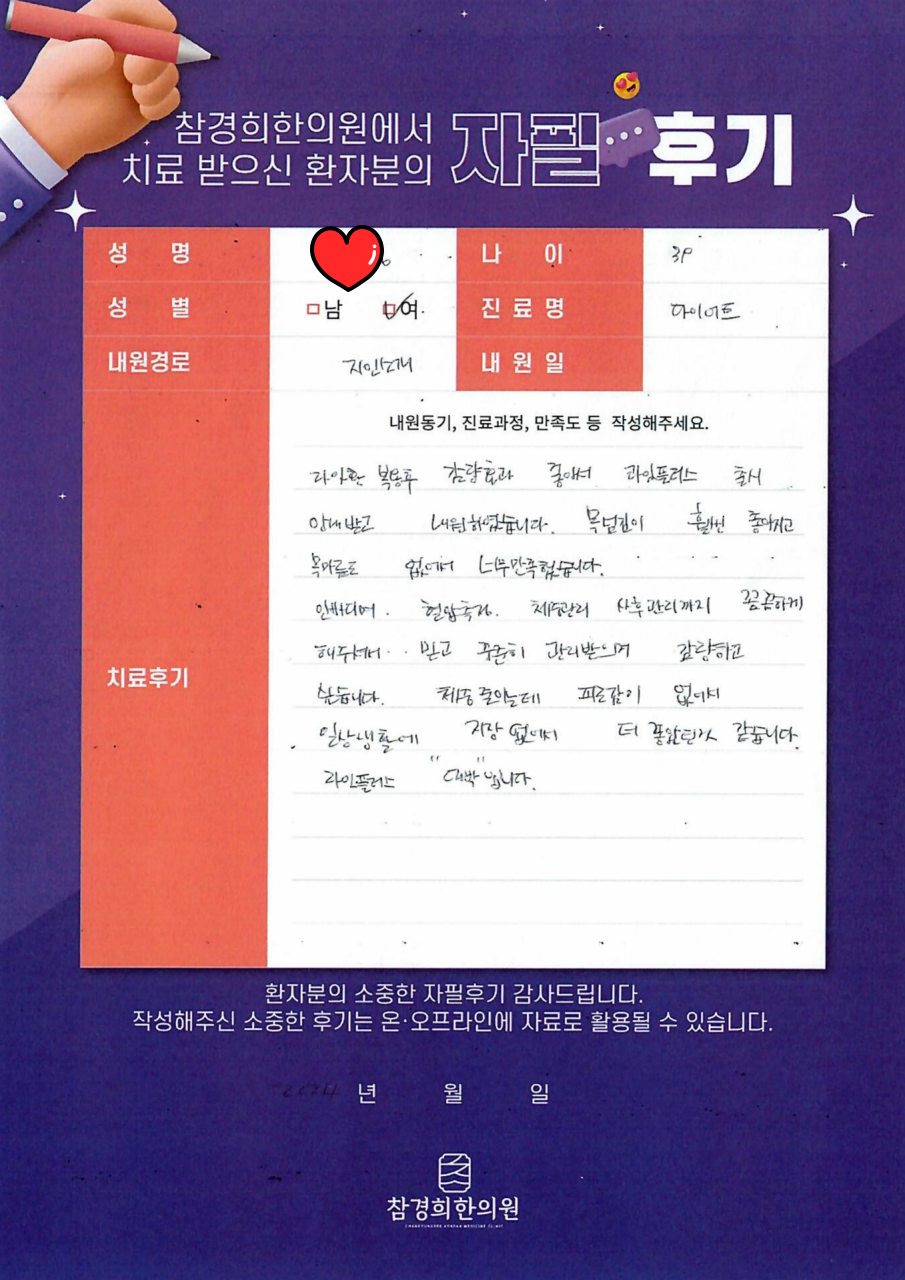 참경희한의원에서
치료 받으신 환자분의 자필 후기
성 명 나 이 39
성 별 남 여 진료명 다이어트
내원경로 지인소개 내원일
내원동기, 진료과정, 만족도 등 작성해주세요.
라인환 복용후 감량효과 좋아서 라인플러스 출시
안내받고 내원하였습니다. 목넘김이 훨씬 좋아지고
목마름도 없어서 너무만족했습니다.
인바디며. 혈압측정. 체중관리 사후관리까지 꼼꼼하게
해주셔서 믿고 꾸준히 관리받으며 감량하고
싶습니다. 체중 줄의는데 피로감이 없어서
일상생활에 지장 없어서 더 좋았던거 같습니다.
치료후기
라인플러스 "대박"입니다.
환자분의 소중한 자필후기 감사드립니다.
작성해주신 소중한 후기는 온·오프라인에 자료로 활용될 수 있습니다.
2024 년 월 일
참경희한의원